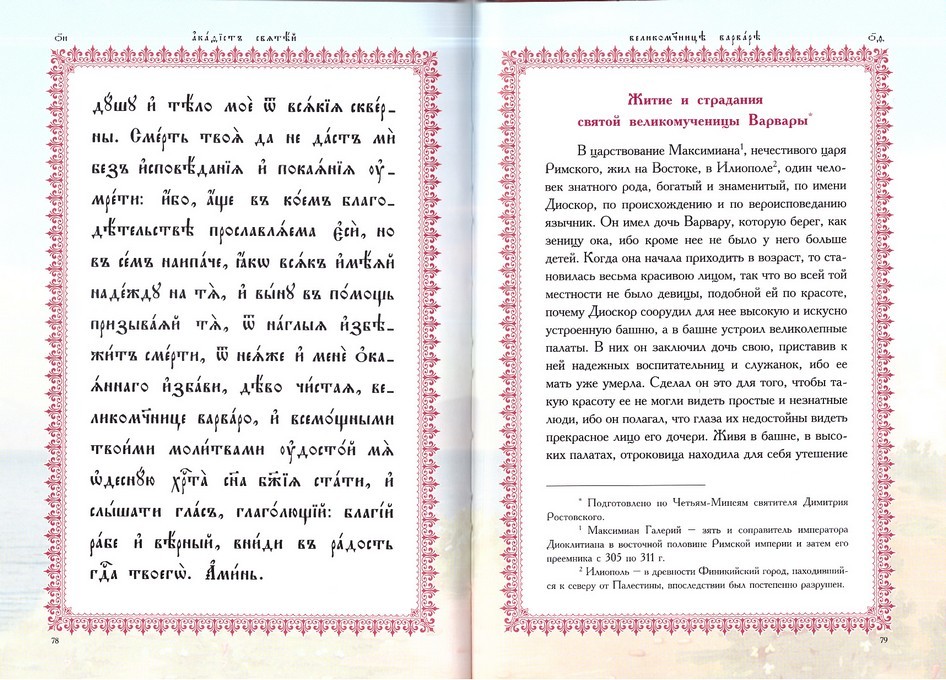 ѻ҃и
а҆ка́ѳїстъ свѧтѣ́й
дꙋ́шꙋ и҆ тѣ́ло моѐ ѿ всѧ́кїѧ скве́р_
ны. Сме́рть твоѧ̀ да не да́стъ мѝ
без̾ и҆сповѣ́данїѧ и҆ покаѧ́нїѧ оу҆_
мре́ти: и҆́бо, а҆́ще въ ко́емъ благо_
дѣ́тельствѣ прославлѧ́ема є҆сѝ, но
въ се́мъ наипа́че, ꙗ҆́кѡ всѧ́къ и҆мѣ́ѧй
наде́ждꙋ на тѧ̀, и҆ вы́нꙋ въ по́мощь
призыва́ѧй тѧ̀, ѿ на́глыѧ и҆збѣ_
жи́тъ сме́рти, ѿ неѧ́же и҆ менѐ ѻ҆ка_
ѧ́ннаго и҆зба́ви, дѣ́во чи́стаѧ, ве_
ликомч҃нице варва́ро, и҆ всемо́щными
твои́ми моли́твами оу҆досто́й мѧ̀
ѡ҆деснꙋ́ю хрⷭ҇та̀ сн҃а бж҃їѧ ста́ти, и҆
слы́шати гла́съ, глаго́лющїй: благі́й
ра́бе и҆ вѣ́рный, вни́ди въ ра́дость
гдⷭ҇а твоегѡ̀. А҆ми́нь.
78
великомч҃ницѣ варва́рѣ
ѻ҃ѳ.
Житие и страдания
святой великомученицы Варвары*
В царствование Максимиана¹, нечестивого царя
Римского, жил на Востоке, в Илиополе², один чело-
век знатного рода, богатый и знаменитый, по имени
Диоскор, по происхождению и по вероисповеданию
язычник. Он имел дочь Варвару, которую берег, как
зеницу ока, ибо кроме нее не было у него больше
детей. Когда она начала приходить в возраст, то ста-
новилась весьма красивою лицом, так что во всей той
местности не было девицы, подобной ей по красоте,
почему Диоскор соорудил для нее высокую и искусно
устроенную башню, а в башне устроил великолепные
палаты. В них он заключил дочь свою, приставив к
ней надежных воспитательниц и служанок, ибо ее
мать уже умерла. Сделал он это для того, чтобы та-
кую красоту ее не могли видеть простые и незнатные
люди, ибо он полагал, что глаза их недостойны видеть
прекрасное лицо его дочери. Живя в башне, в высо-
ких палатах, отроковица находила для себя утешение
* Подготовлено по Четьям-Минеям святителя Димитрия
Ростовского.
¹ Максимиан Галерий – зять и соправитель императора
Диоклитиана в восточной половине Римской империи и затем его
преемника с 305 по 311 г.
² Илиополь – в древности Финикийский город, находивший-
ся к северу от Палестины, впоследствии был постепенно разрушен.
79